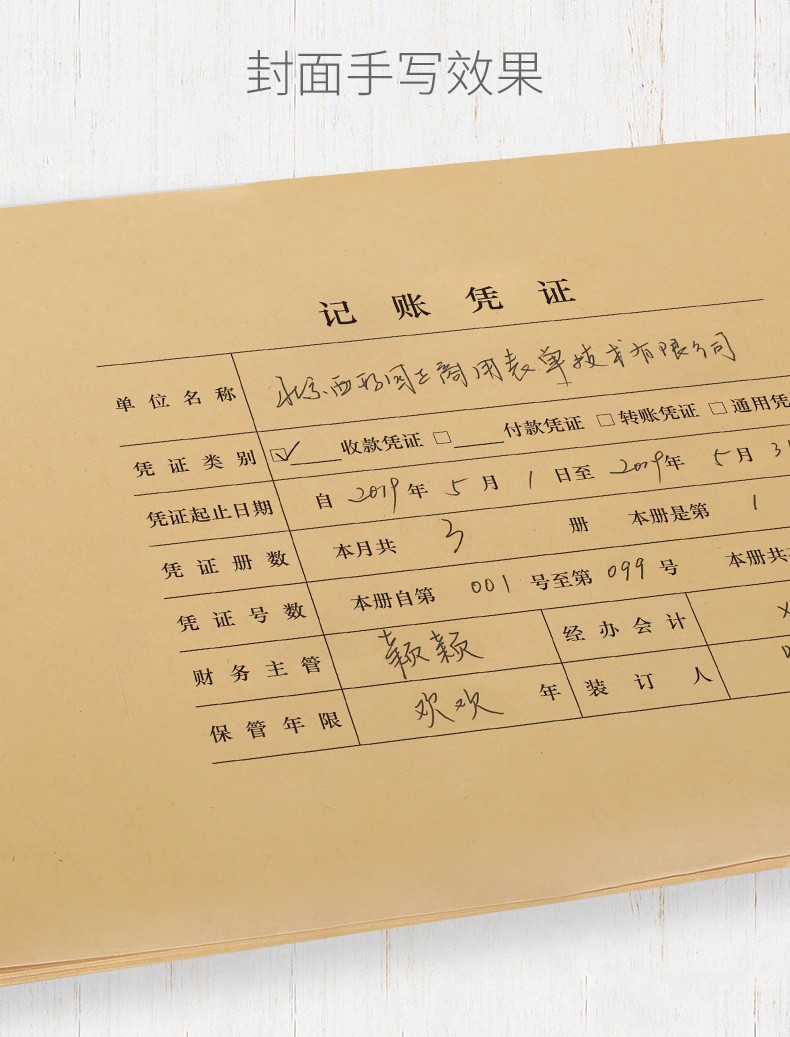 封面手写效果
记账凭证
单位名称 北京西玛国正商用表单技术有限公司
凭证类别 ☑____收款凭证 □____付款凭证 □转账凭证 □通用凭
凭证起止日期 自 2019 年 5 月 1 日至 2019 年 5 月 31
凭证册数 本月共 3 册 本册是第 1
凭证号数 本册自第 001 号至第 099 号 本册共
财务主管 颖颖 经办会计
保管年限 欢欢 年 装订人